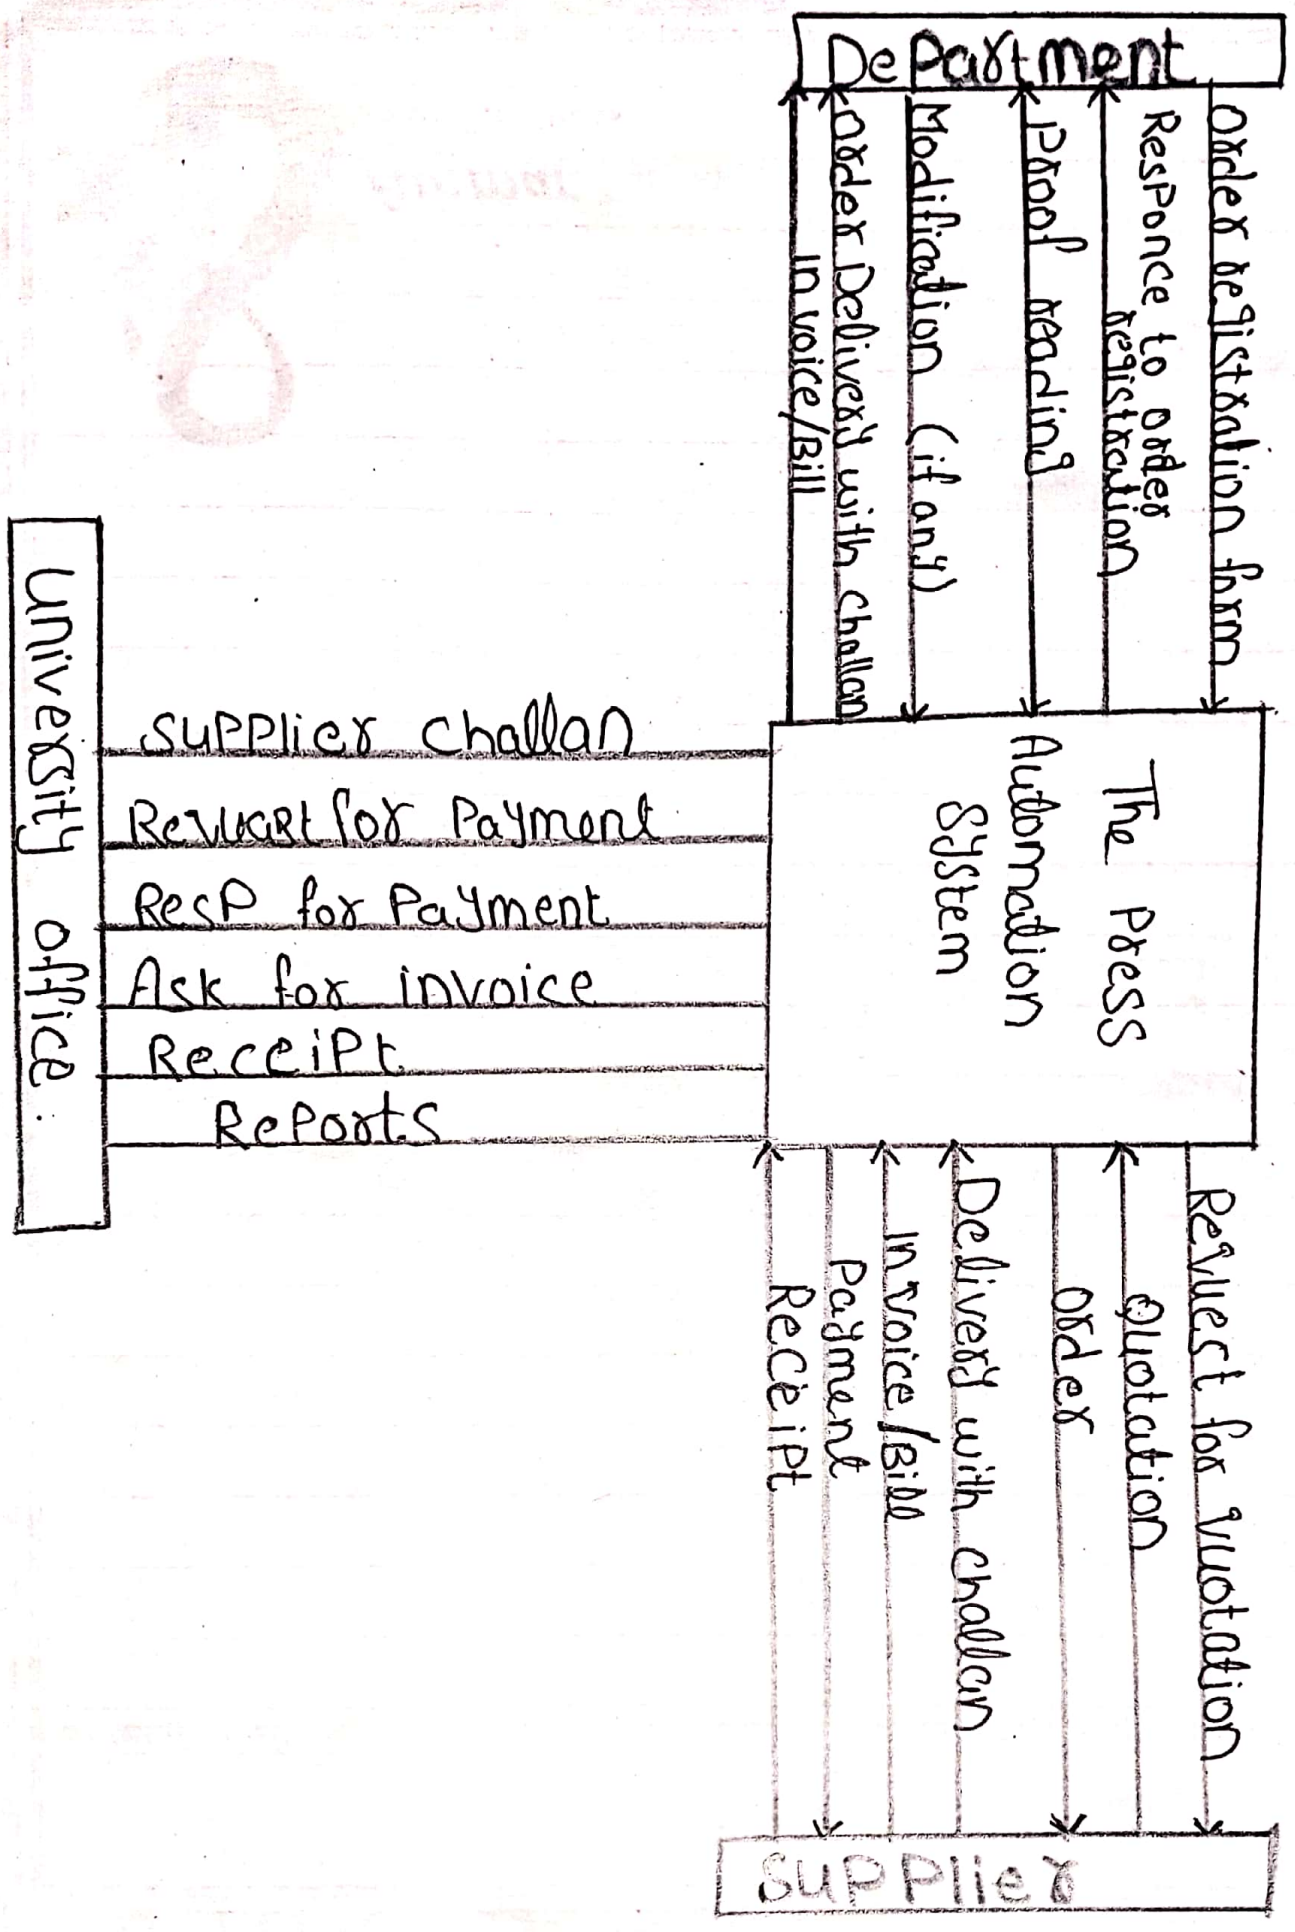 Department
order registration form
Responce to order
registration
Proof reading
Modification (if any)
order Delivery with challan
Invoice/Bill
The Press
Automation
System
supplier challan
Request for Payment
Resp for Payment
Ask for invoice
Receipt
Reports
University office.
Request for quotation
quotation
order
Delivery with challan
Invoice/Bill
Payment
Receipt
supplier